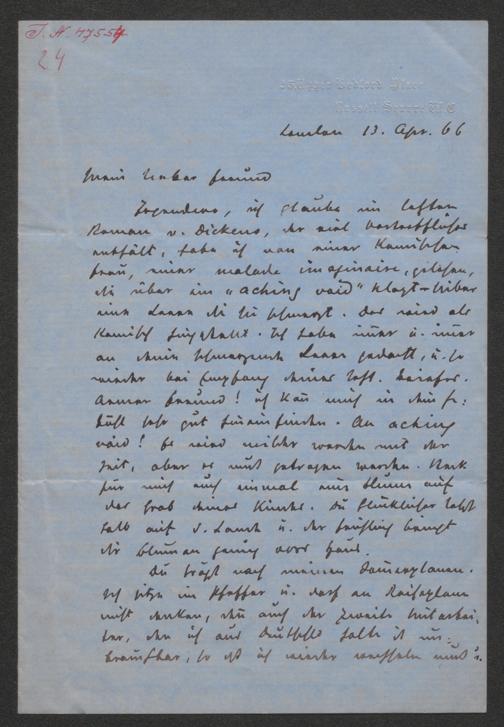 I. N. 47554
24
Russell Square W.C.
London 13. Apr. 66
Mein lieber Freund
Irgendwo, ich glaube im letzten
Roman v. Dickens, der viel Vortreffliches
enthält, habe ich von einer komischen
Frau, einer malade imaginaire, gelesen,
die über ein "aching void" klagt - über
eine Leere die sie schmerzt. Das wird als
komisch hingestellt. Ich habe immer u. immer
an deine schmerzende Leere gedacht, u. so
wieder bei Empfang deines letzt. Briefes.
Armer Freund! ich kann mich in dein Ge-
fühl sehr gut hineinfinden. An aching
void! Es wird milder werden mit der
Zeit, aber es muß getragen werden.
für mich auch einmal eine Blume auf
das Grab deines Kindes. Du Glücklicher lebst
halb auf d. Lande u. der Frühling bringt
dir Blumen genug vors Haus.
Du frägst nach meinen Sommerplanen.
Ich sitze im Pfeffer u. darf an Reiseplane
nicht denken, denn auch der zweite Mitarbei-
ter, den ich aus Deutschld hatte ist un-
brauchbar, so daß ich wieder wechseln muß u.